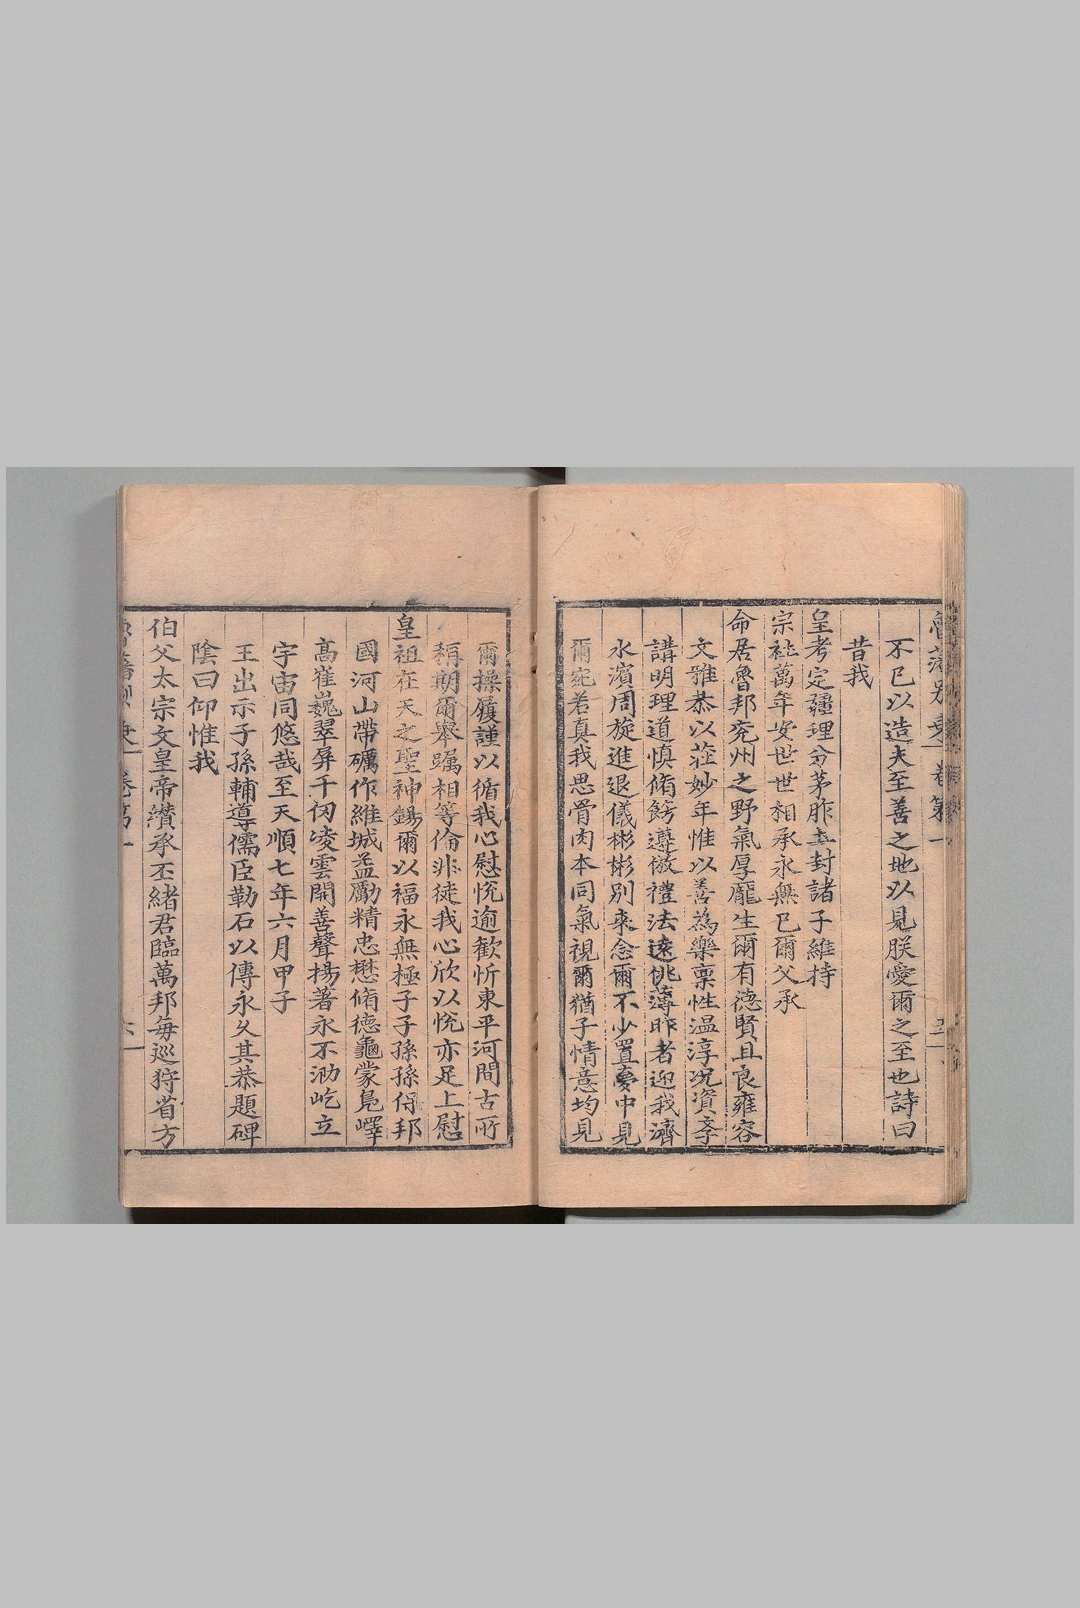 魯藩別乗 卷第一 五
不已以造夫至善之地以見朕愛爾之至也詩曰
昔我
皇考定疆理分茅胙土封諸子維持
宗祉萬年安世世相承永無已爾父承
命居魯邦兖州之野氣厚龐生爾有德賢且良雍容
文雅恭以莊妙年惟以善為樂禀性温淳况資李
講明理道慎脩飭遵倣禮法遠佻薄昨者迎我濟
水濱周旋進退儀彬彬别來念爾不少置夢中見
爾宛若真我思骨肉本同氣視爾猶子情意均見
爾操履謹以循我心慰恱逾歡忻東平河間古所
稱期爾舉躅相等倫非徒我心欣以恱亦足上慰
皇祖在天之聖神錫爾以福永無極子子孫孫保邦
國河山帶礪作維城益勵精忠懋脩徳龜蒙鳬嶧
髙崔巍翠屏千仞凌雲開善聲揚著永不泐屹立
宇宙同悠哉至天順七年六月甲子
王出示子孫輔導儒臣勒石以傳永久其恭題碑
陰曰仰惟我
伯父太宗文皇帝纉承丕緒君臨萬邦毎巡狩省方
魯藩別乗 卷第一 六